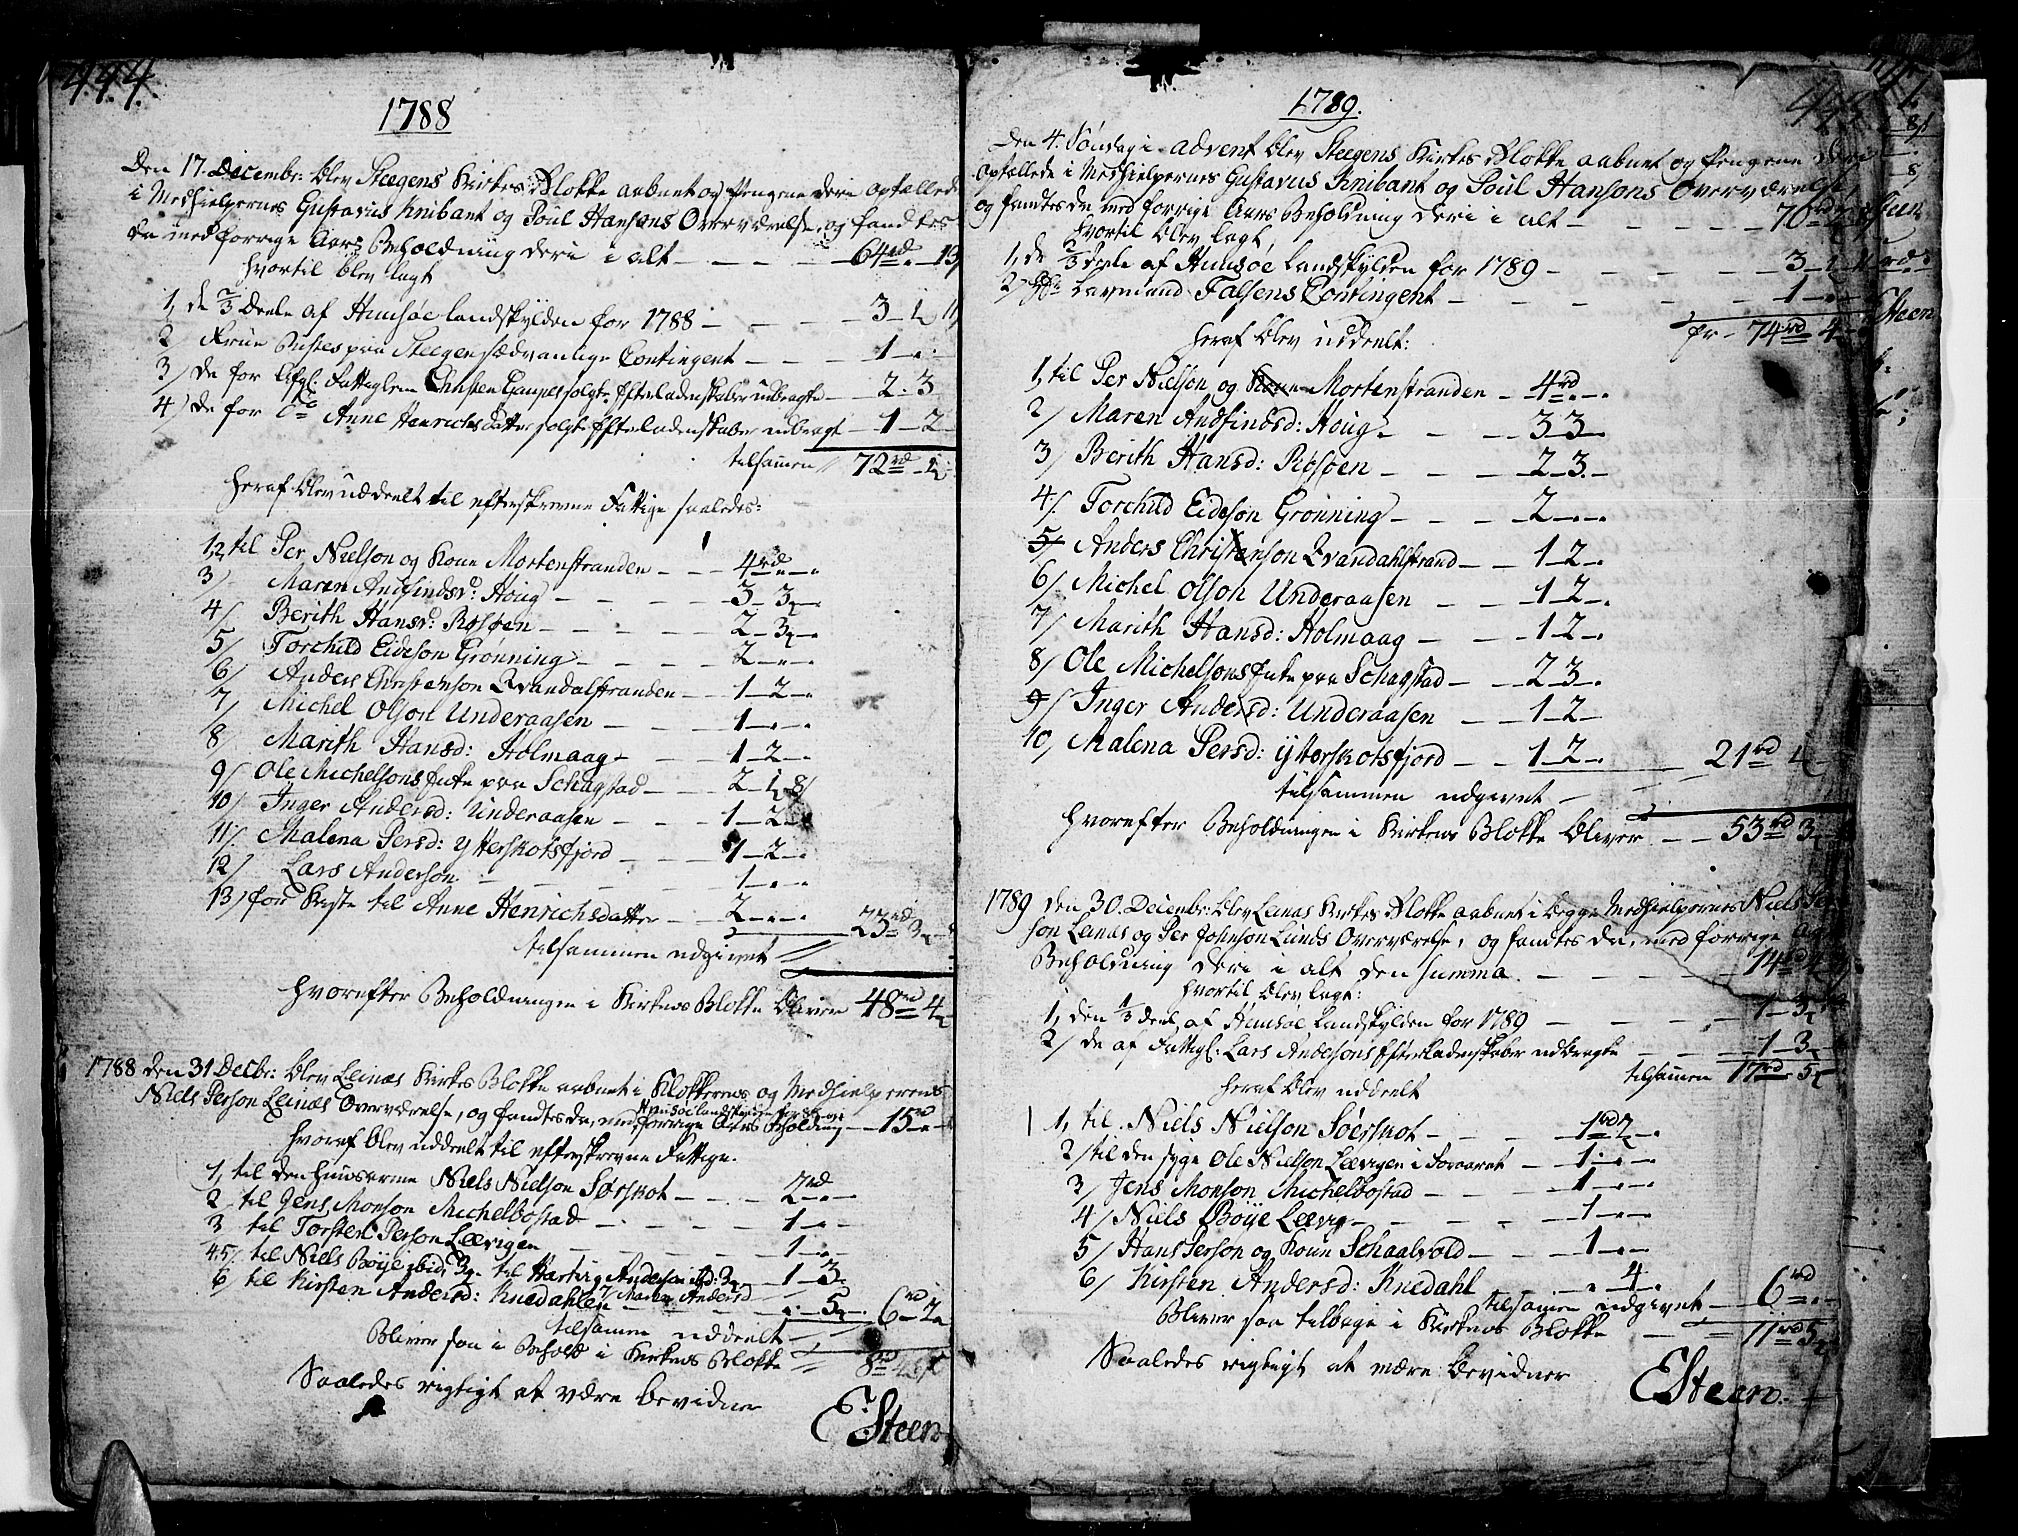 444.
1788
Den 17. Decembr: blev Steegens Kirkes Blokke aabnet og Pengene deri optællede
i Medhielpernes Gustavus Knibant og Poul Hansens Overværelse, og fandtes
da med forrige Aars Beholdning deri i alt - - - - 64rd . 13
hvortil blev lagt
1, de 2/3 Deele af Hunsøe landskylden for 1788 - - - 3 - 1
2 Frue paa Steegen sædvanlige Contingent - - - 1 - .
3/ de for Afgl: Fattiglem Christen solgte Efterladenskaber indbragte - 2 . 3
4/ de for do Anne Henrichsdatter solgte Efterladenskaber indbragt - 1 - 2
tilsamen 72rd - 1
heraf blev uddeelt til efterskrevne Fattige saaledes:
1, 2, til Per Nielson og Kone Mortenstranden - - - 4rd - .
3/ Maren Andfindsd: Houg - - - - 3 - 3
4/ Berith Hansd: Rosøen - - - - 2 - 3
5/ Torchild Eideson Grønning - - - - 2 - .
6/ Anders Christenson Qvandalstranden - - 1 - 2 -
7/ Michel Olson Underaasen - - - 1 - .
8/ Marith Hansd: Holmaag - - - 1 - 2 -
9/ Ole Michelsons Enke paa Schagstad - - - 2 - 1 8/
10/ Inger Andersd: Underaasen - - - 1 - 2
11/ Malena Persd: Ytterskotsfjord - - - 1 - 2 -
12/ Lars Anderson - - - - 1 - .
13/ for Kiste til Anne Henrichsdatter - - 2 - . 23rd 3
tilsammen udgivet
hvorefter Beholdningen i Kirkens Blokke bliver 48rd 4
1788 den 31 Decbr: blev Leines Kirkes Blokke aabnet i Klokkerens og Medhielperens
Niels Person Leines Overværelse, og fandtes da, med forrige Aars Beholdning - 15rd
hvoraf blev uddeelt til efterskrevne Fattige.
1, til den huusarme Niels Nielson Sørskot - - - 2rd
2 til Jens Monson Michelbostad - - - 1 - .
3 til Torsten Person Leevigen - - - 1 - .
4.5/ til Niels Boye ibid, 3. til Hartvig Anderson ibd: 3 - 1 - 3
6 til Kirsten Andersd: Knedahlen - - - . 5 6rd - 2
tilsamen uddeelt
Bliver saa i Behold i Kirkens Blokke 8rd
Saaledes rigtigt at være bevidner
E. Steen
1789.
Den 4. Søndag i Advent blev Steegens Kirkes Blokke aabnet og Pengene deri
optællede i Medhielpernes Gustavus Knibant og Poul Hansons Overværelse,
og fandtes da med forrige Aars Beholdning deri i alt - - - 70rd
hvortil blev lagt,
1, de 2/3 deele af Hunsøe landskylden for 1789 - - - 3 - 1
2/ Lavmand Falsens Contingent - - - 1 - .
74rd 4
heraf blev uddeelt:
1, til Per Nielson, og Kone Mortenstranden - 4rd - .
2/ Maren Andfindsd: Houg - - - 3 3 - .
3/ Berith Hansd: Rosøen - - - 2 - 3 -
4/ Torchild Eideson Grønning - - - 2 - .
5/ Anders Christenson Qvandahlstrand - - 1 - 2 -
6/ Michel Olson Underaasen - - 1 - 2 -
7/ Marith Hansd: Holmaag - - - 1 2 - .
8/ Ole Michelsons Enke paa Schagstad - - 2 3 .
9/ Inger Andersd: Underaasen - - 1 - 2 -
10/ Malena Persd: Ytterskotsfjord - - 1 - 2 - . 21rd 4
tilsammen udgivet -
hvorefter Beholdningen i Kirkens Blokke bliver - - 53rd 3
1789 den 30. Decembr: blev Leines Kirkes Blokke aabnet i begge Medhielpernes Niels
son Leines og Per Johnson Lunds Overværelse, og fandtes da, med forrige
Beholdning deri i alt den Summa - - - 14rd
hvortil blev lagt:
1, den 1/3 deel af Hunsøe landskylden for 1789 - - - 1 - 3
2/ de af Fattigl: Lars Andersons Efterladenskaber udbragte - - 1 3
tilsamen 17rd 5
heraf blev uddeelt
1, til Niels Nielson Sørskot - - - 1rd 2 - .
2/ til den syge Ole Nielson Leevigen i Forraret - 1 - .
3/ Jens Monson Michelbostad - - - 1 - .
4/ Niels Boye Leevig - - - 1 - .
5/ Hans Person og Kone Schaalvold - - - 1 - .
6/ Kirsten Andersd: Knedahl . 4 - .
tilsamen udgivet - 6rd
Bliver saa tilbage i Kirkens Blokke - 11rd 5
Saaledes rigtigt at være bevidner
E Steen